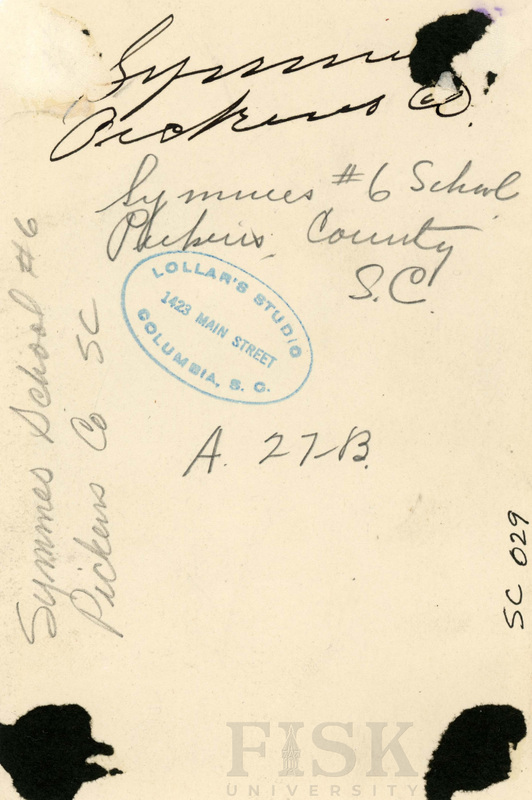 Symmes
Pickens Co.
Symmes #6 School
Pickens County
S.C.
LOLLAR'S STUDIO
1423 MAIN STREET
COLUMBIA, S. C.
A. 27-B.
Symmes School #6
Pickens Co SC
SC 029
FISK
UNIVERSITY